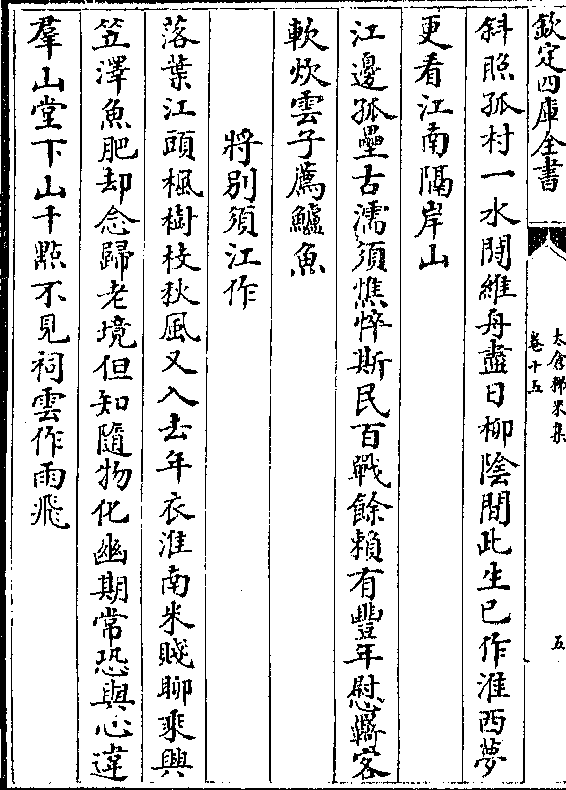 欽定四庫全書
太倉稊米集
卷十五
五
斜照孤村一水閒維舟盡日柳陰間此生已作淮西夢
更看江南隔岸山
江邊孤壘古濡須憔悴斯民百戰餘賴有豐年慰羈客
軟炊雲子薦鱸魚
將别須江作
落葉江頭楓樹枝秋風又入去年衣淮南米賤聊乘興
笠澤魚肥却念歸老境但知隨物化幽期常恐與心違
羣山堂下山千㸃不見祠雲作雨飛